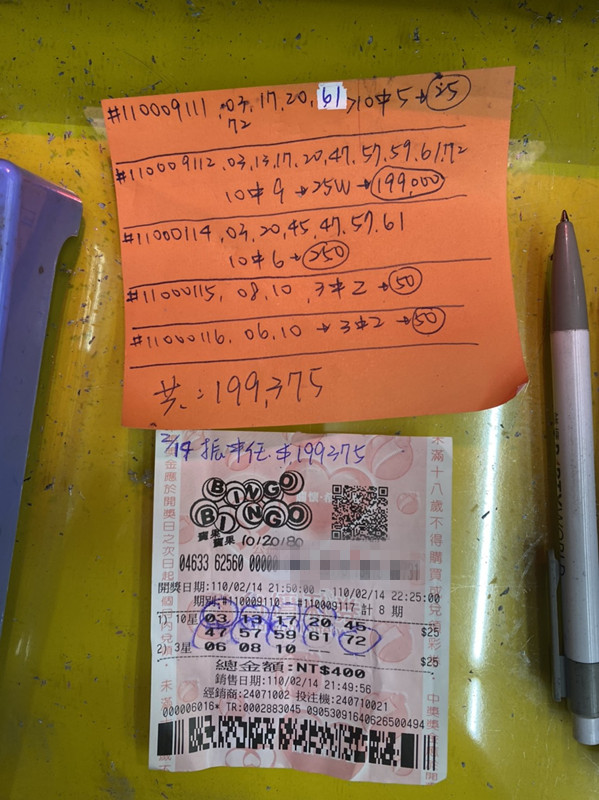 #110009111, 03, 17, 20, 61 >10中5→25
72
#110009112, 03, 13, 17, 20, 47, 57, 59, 61, 72
10中9→25W→199,000
#11000114, 03, 20, 45, 47, 57, 61
10中6→250
#11000115, 08, 10, 3中2→50
#11000116, 06, 10→3中2→50
共:199,375
2/14 振 199375
BINGO
BINGO
賓果
賓果 10/20/80
04633 62560 00000
開獎日期:110/02/14 21:50:00 - 110/02/14 22:25:00
期別:#110009110 - #110009117 計 8 期
1) 10星 03 13 17 20 45 $25
47 57 59 61 72
2) 3星 06 08 10 $25
總金額:NT$400
銷售日期:110/02/14 21:49:56
經銷商:24071002 投注機:240710021
000006016* TR:0002883045 09053091640626500494
金應於開獎日之次日起
個
內兌
未滿十八歲不得購買或兌領彩
未滿
中獎獎